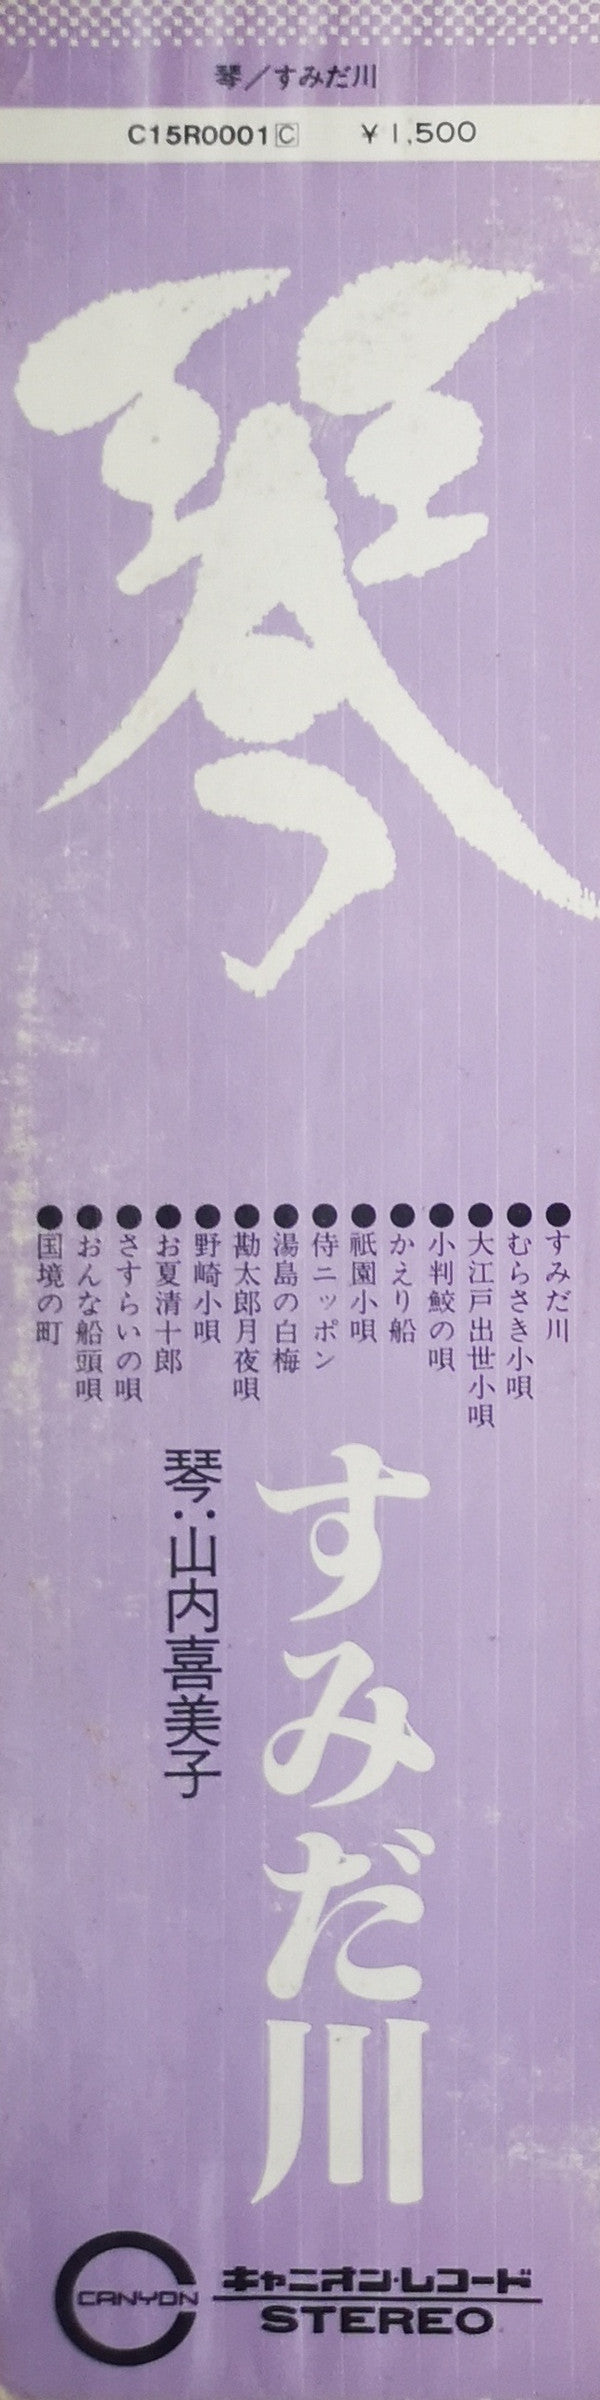 琴／すみだ川
C15R0001 C ￥1,500
琴
●すみだ川
●むらさき小唄
●大江戸出世小唄
●小判鮫の唄
●かえり船
●祇園小唄
●侍ニッポン
●湯島の白梅
●勘太郎月夜唄
●野崎小唄
●お夏清十郎
●さすらいの唄
●おんな船頭唄
●国境の町
すみだ川
琴:山内喜美子
CANYON
キャニオン・レコード
STEREO